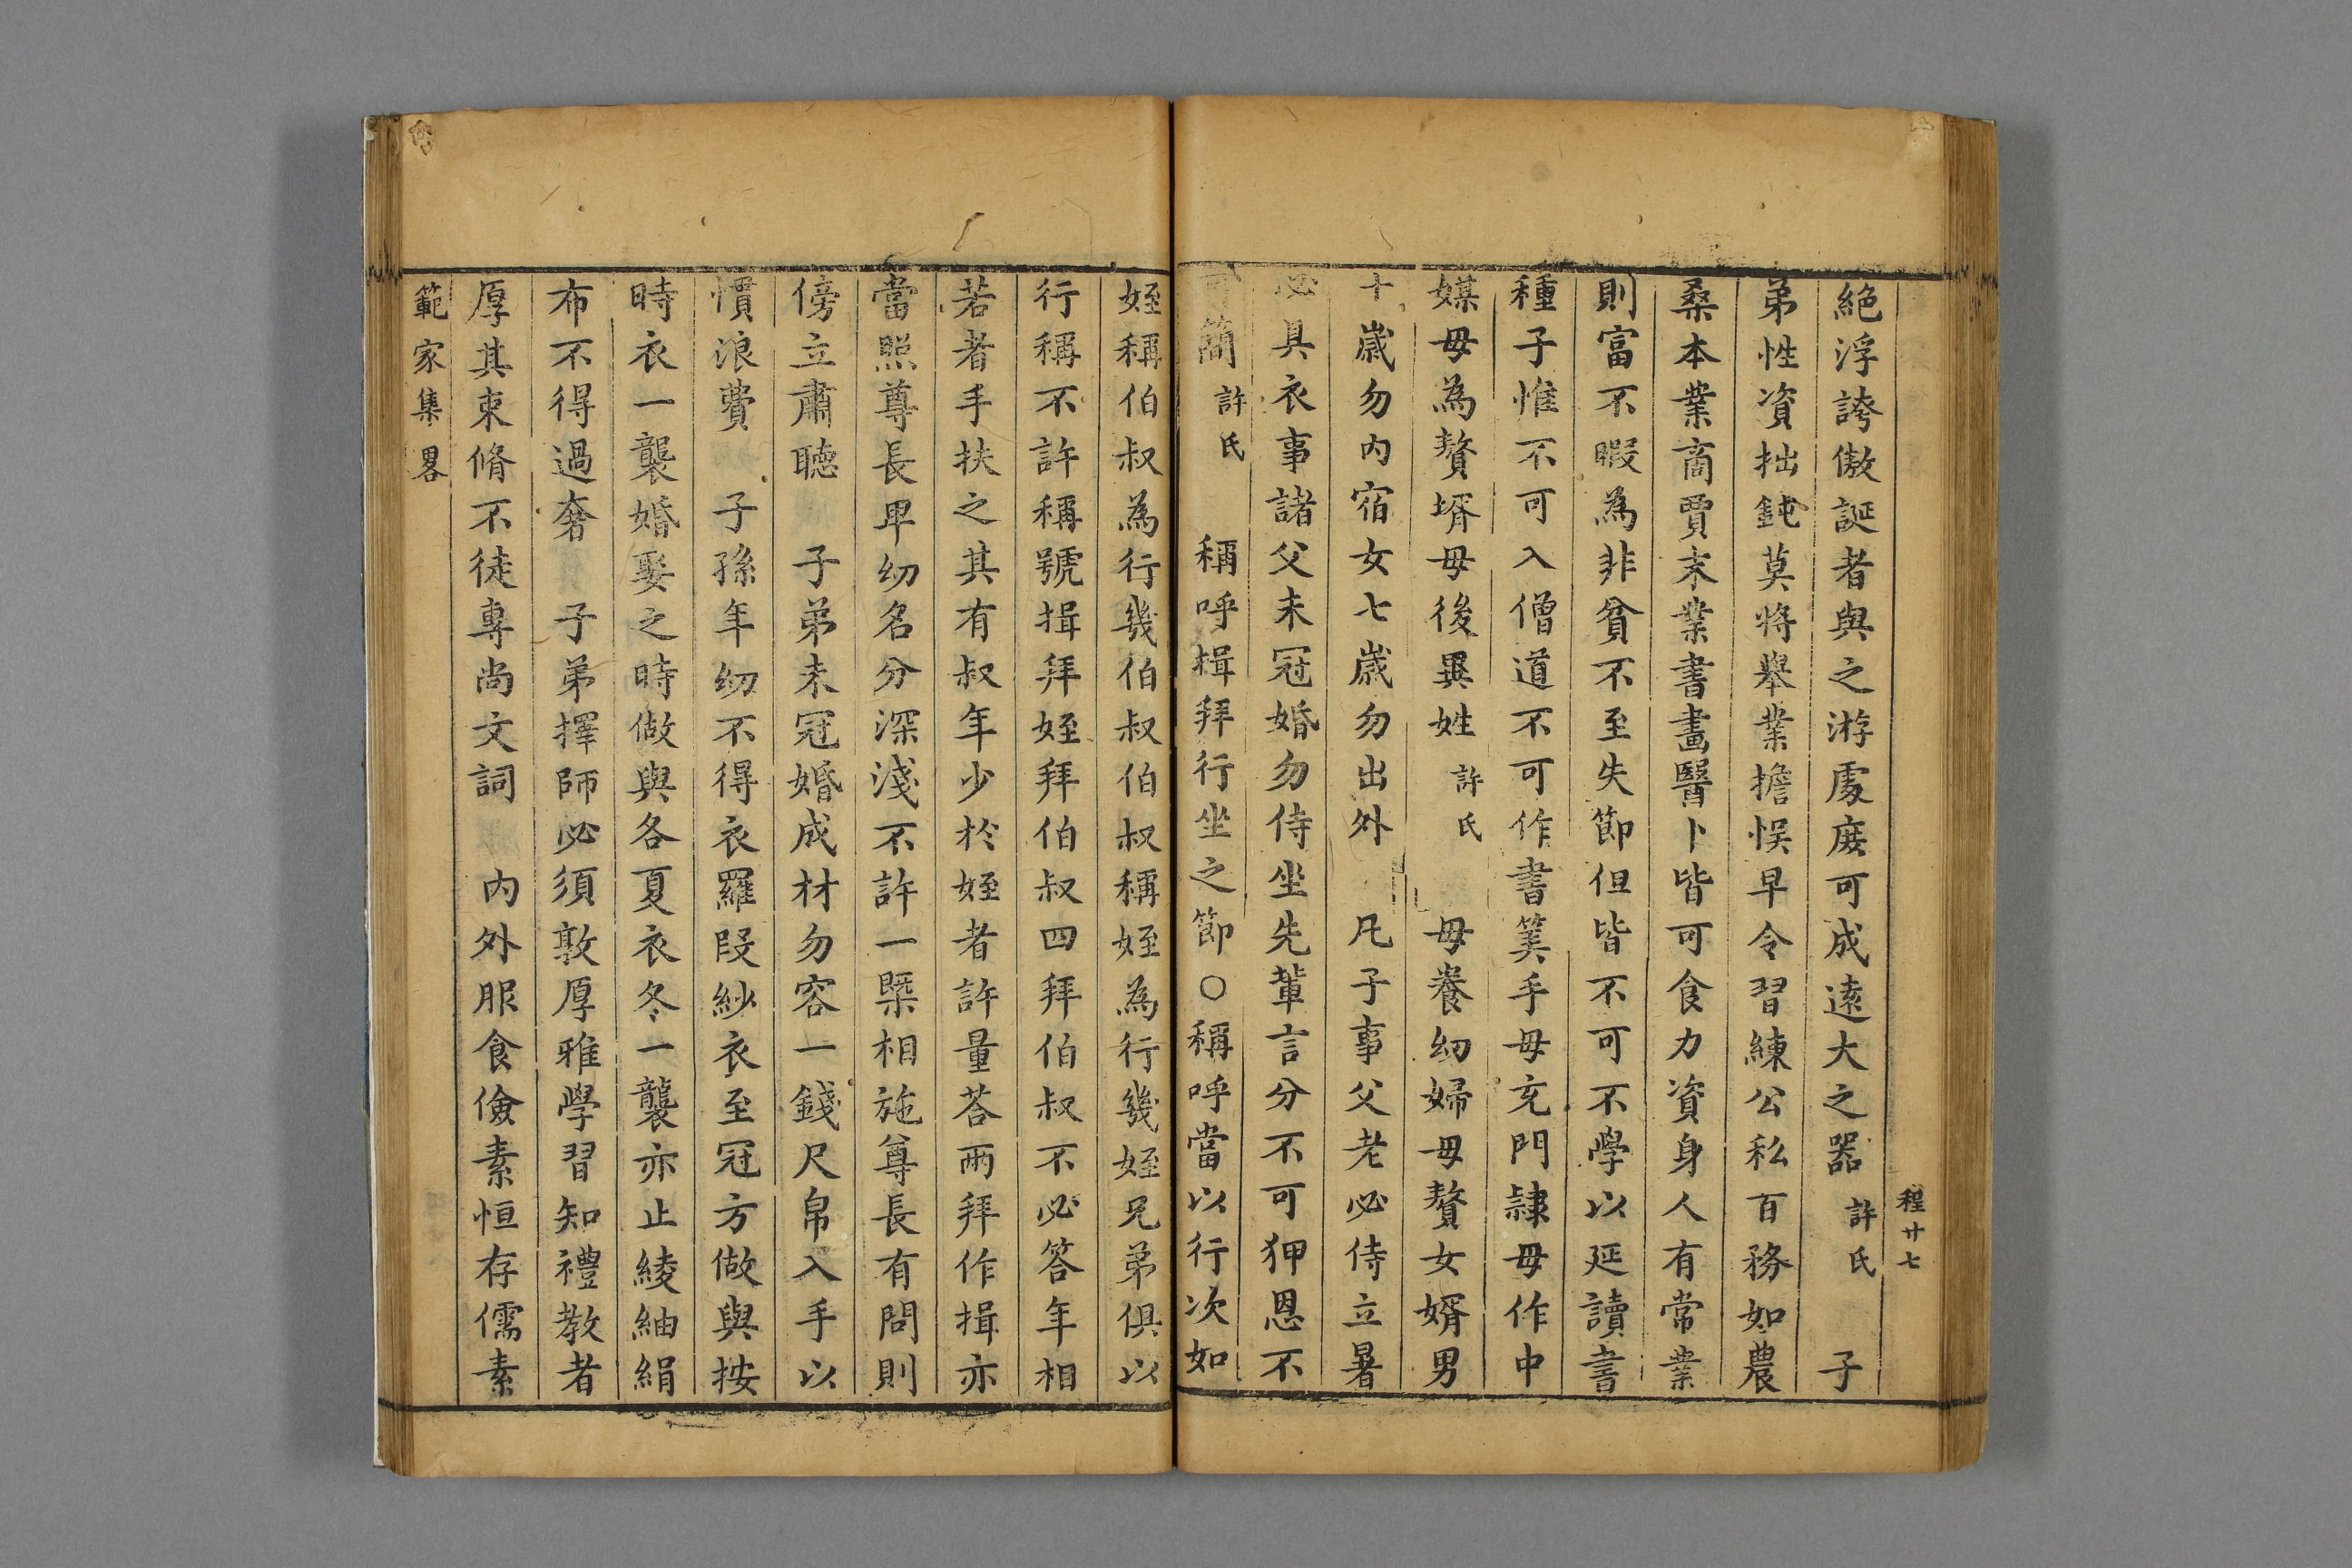 程廿七
絕浮誇傲誕者與之游處庻可成遠大之器許氏 子
弟性資拙鈍莫將舉業擔悞早令習練公私百務如農
桑本業商賈末業書畫醫卜皆可食力資身人有常業
則富不暇為非貧不至失節但皆不可不學以延讀書
種子惟不可入僧道不可作書筭手毋充門隷毋作中
媒毋為贅壻毋後異姓許氏 毋養幼婦毋贅女婿男
十歲勿內宿女七歲勿出外 凡子事父老必侍立暑
必具衣事諸父未冠婚勿侍坐先輩言分不可狎恩不
可簡許氏 稱呼揖拜行坐之節○稱呼當以行次如
姪稱伯叔為行幾伯叔伯叔稱姪為行幾姪兄弟俱以
行稱不許稱號揖拜姪拜伯叔四拜伯叔不必答年相
若者手扶之其有叔年少於姪者許量荅兩拜作揖亦
當照尊長卑幼名分深淺不許一槩相施尊長有問則
傍立肅聽 子弟未冠婚成材勿容一錢尺帛入手以
慣浪費 子孫年幼不得衣羅段紗衣至冠方做與按
時衣一襲婚娶之時做與各夏衣冬一襲亦止綾紬絹
布不得過奢 子弟擇師必須敦厚雅學習知禮教者
厚其束脩不徒專尚文詞 內外服食儉素恒存儒素
範家集畧